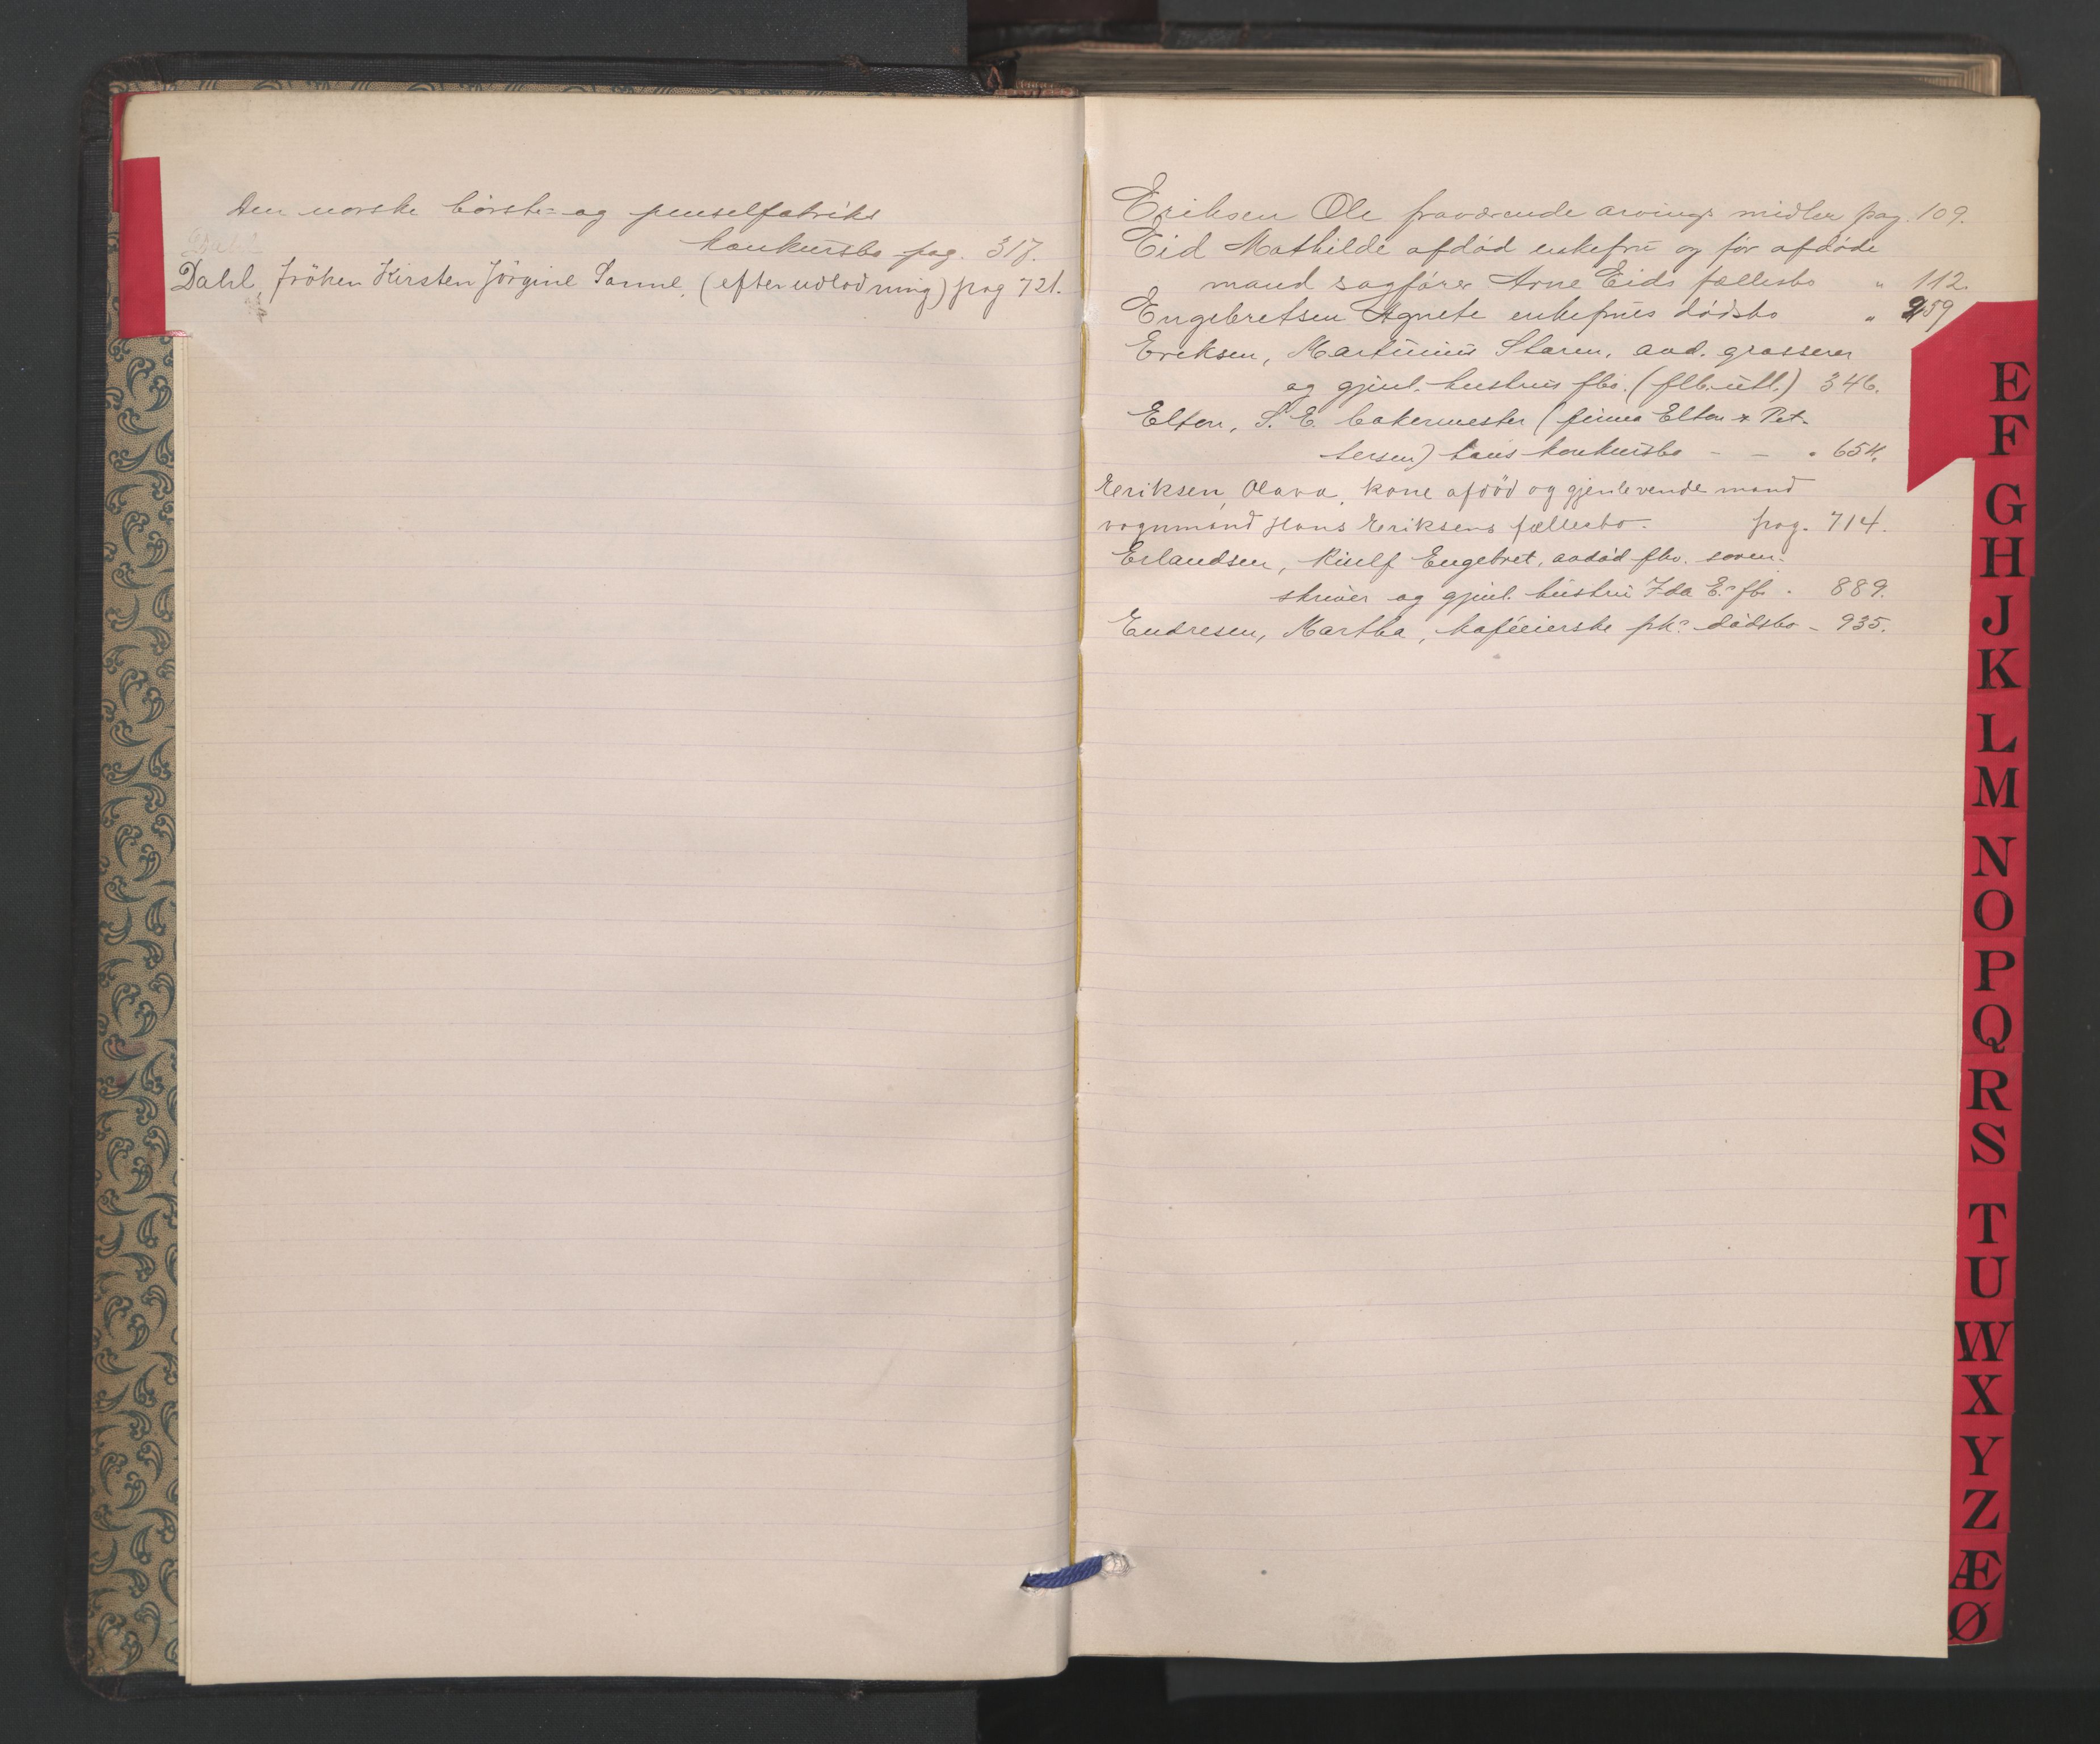 Den norske börste- og penselfabriks
konkursbo pag. 317.
Dahl
Dahl, fröken Kirsten Jörgine Sanne, (efter udlodning) pag 721.
Eriksen Ole fraværende arvings midler pag. 109.
Eid Mathilde afdød enkefru og før afdøde
mand sagfører Arne Eids fællesbo " 112.
Engebretsen Agnete enkefrues dødsbo " 259
Eriksen, Martinius Staren, avd. grosserer
og gjenl. hustrus fbo. (flb. utl.) 346.
Elton, S. E. bakermester (firma Elton & Pet-
tersen) hans konkursbo - - " 654.
Eriksen, Olava, kone afdöd og gjenlevende mand
vognmand Hans Eriksens fællesbo. pag. 714.
Erlandsen, Rinlf Engebret, avdöd fhv. soren-
skriver og gjenl. hustru Ida E.s fbo. 889.
Endresen, Martha, kaféeierske frk.s dödsbo - 935.
E
F
G
H
J
K
L
M
N
O
P
Q
R
S
T
U
W
X
Y
Z
Æ
Ø